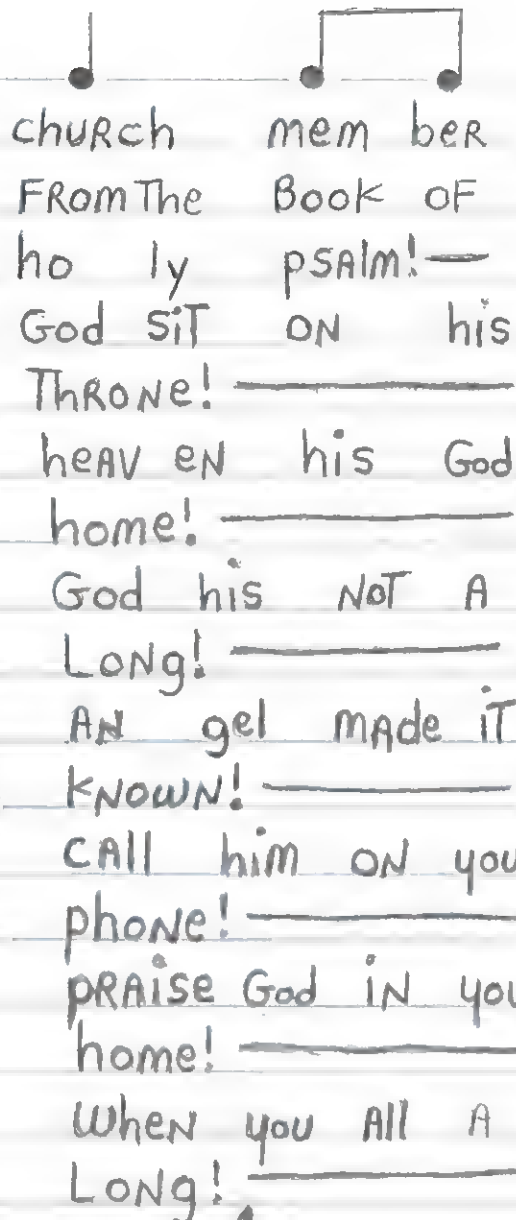 chuRch mem beR
FRom The Book OF
ho ly pSAlm! —
God SiT ON his
ThRoNe! —
heAV eN his God
home! —
God his NoT A
LoNg! —
AN gel mAde iT
KNowN! —
CAll him oN you
phoNe! —
pRAiSe God iN you
home! —
wheN you All A
LoNg! —